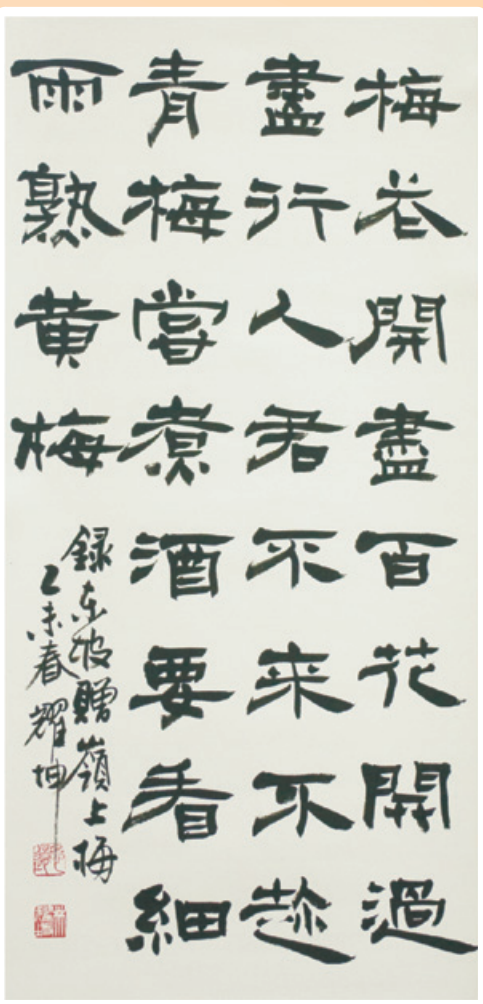 梅花開盡百花開過
盡行人君不來不趁
青梅嘗煮酒要看細
雨熟黄梅
録東坡贈嶺上梅
乙未春耀坤